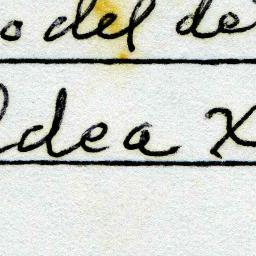 o del de
ldea X